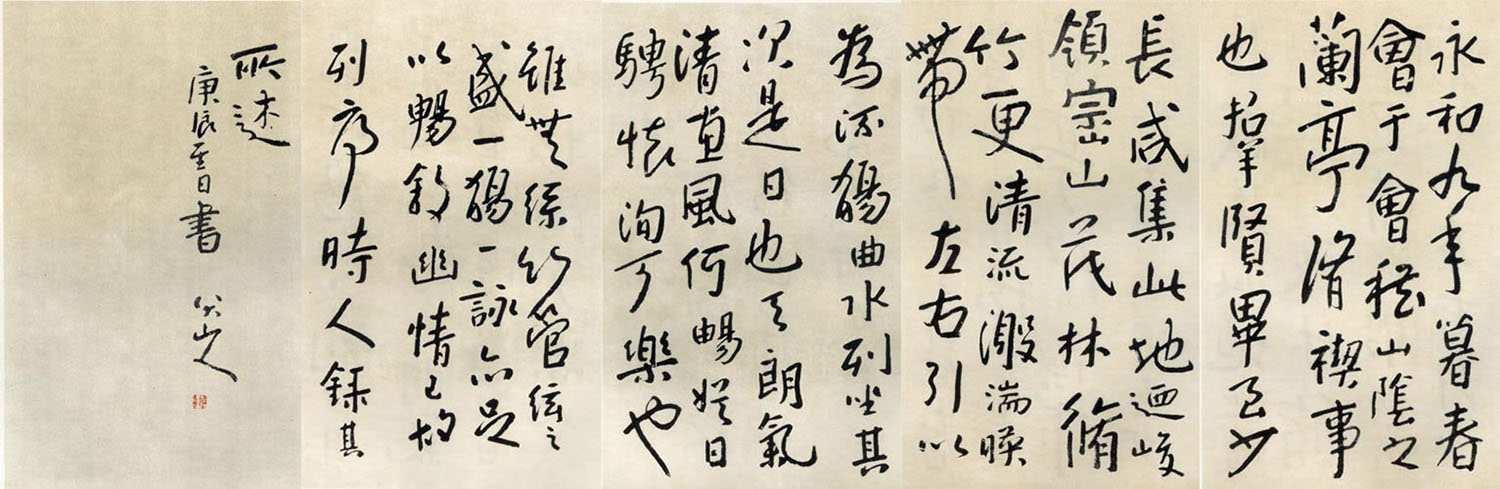 永和九年暮春
會于會稽山陰之
蘭亭脩禊事
也招羣賢畢至少
長咸集此地迺峻
領崈山茂林脩
竹更清流激湍暎
帶左右引以
為流觴曲水列坐其
次是日也天朗氣
清惠風何暢娛日
騁懷洵可樂也
雖無絲竹管弦之
盛一觴一詠亦足
以暢敘幽情已故
列序時人錄其
所述
庚辰至日書 八大山人